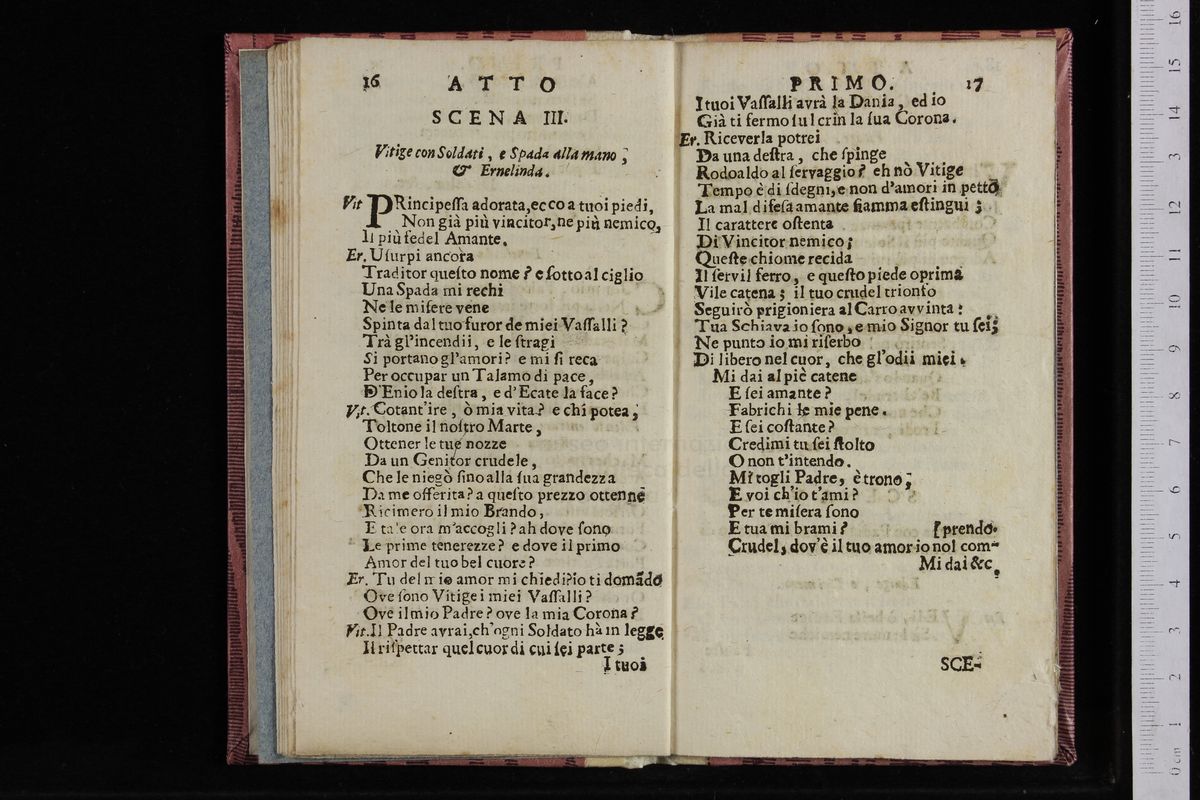 16 ATTO
SCENA III.
Vitige con Soldati, e Spada alla mano;
& Ernelinda.
Vit PRincipeſſa adorata, ecco a tuoi piedi,
Non già più vincitor, ne più nemico,
Il più fedel Amante.
Er. Uſurpi ancora
Traditor queſto nome? e ſotto al ciglio
Una Spada mi rechi
Ne le miſere vene
Spinta dal tuo furor de miei Vaſſalli?
Trà gl'incendii, e le ſtragi
Si portano gl'amori? e mi ſi reca
Per occupar un Talamo di pace,
D'Enio la deſtra, e d'Ecate la face?
Vit. Cotant'ire, ò mia vita? e chi potea,
Toltone il noſtro Marte,
Ottener le tue nozze
Da un Genitor crudele,
Che le niegò ſino alla ſua grandezza
Da me offerita? a queſto prezzo ottenne
Ricimero il mio Brando,
E tale ora m'accogli? ah dove ſono
Le prime tenerezze? e dove il primo
Amor del tuo bel cuore?
Er. Tu del mio amor mi chiedi? io ti domãdo
Ove ſono Vitige i miei Vaſſalli?
Ove il mio Padre? ove la mia Corona?
Vit. Il Padre avrai, ch'ogni Soldato hà in legge
Il riſpettar quel cuor di cui ſei parte;
I tuoi
PRIMO. 17
I tuoi Vaſſalli avrà la Dania, ed io
Già ti fermo ſul crin la ſua Corona.
Er. Riceverla potrei
Da una deſtra, che ſpinge
Rodoaldo al ſervaggio? eh nò Vitige
Tempo è di ſdegni, e non d'amori in petto
La mal difeſa amante fiamma eſtingui;
Il carattere oſtenta
Di Vincitor nemico;
Queſte chiome recida
Il ſervil ferro, e queſto piede oprima
Vile catena; il tuo crudel trionfo
Seguirò prigioniera al Carro avvinta:
Tua Schiava io ſono, e mio Signor tu ſei;
Ne punto io mi riſerbo
Di libero nel cuor, che gl'odii miei.
Mi dai al piè catene
E ſei amante?
Fabrichi le mie pene.
E ſei coſtante?
Credimi tu ſei ſtolto
O non t'intendo.
Mi togli Padre, è trono;
E voi ch'io t'ami?
Per te miſera ſono
E tua mi brami? [prendo.
Crudel, dov'è il tuo amor io nol com-
Mi dai &c.
SCE-